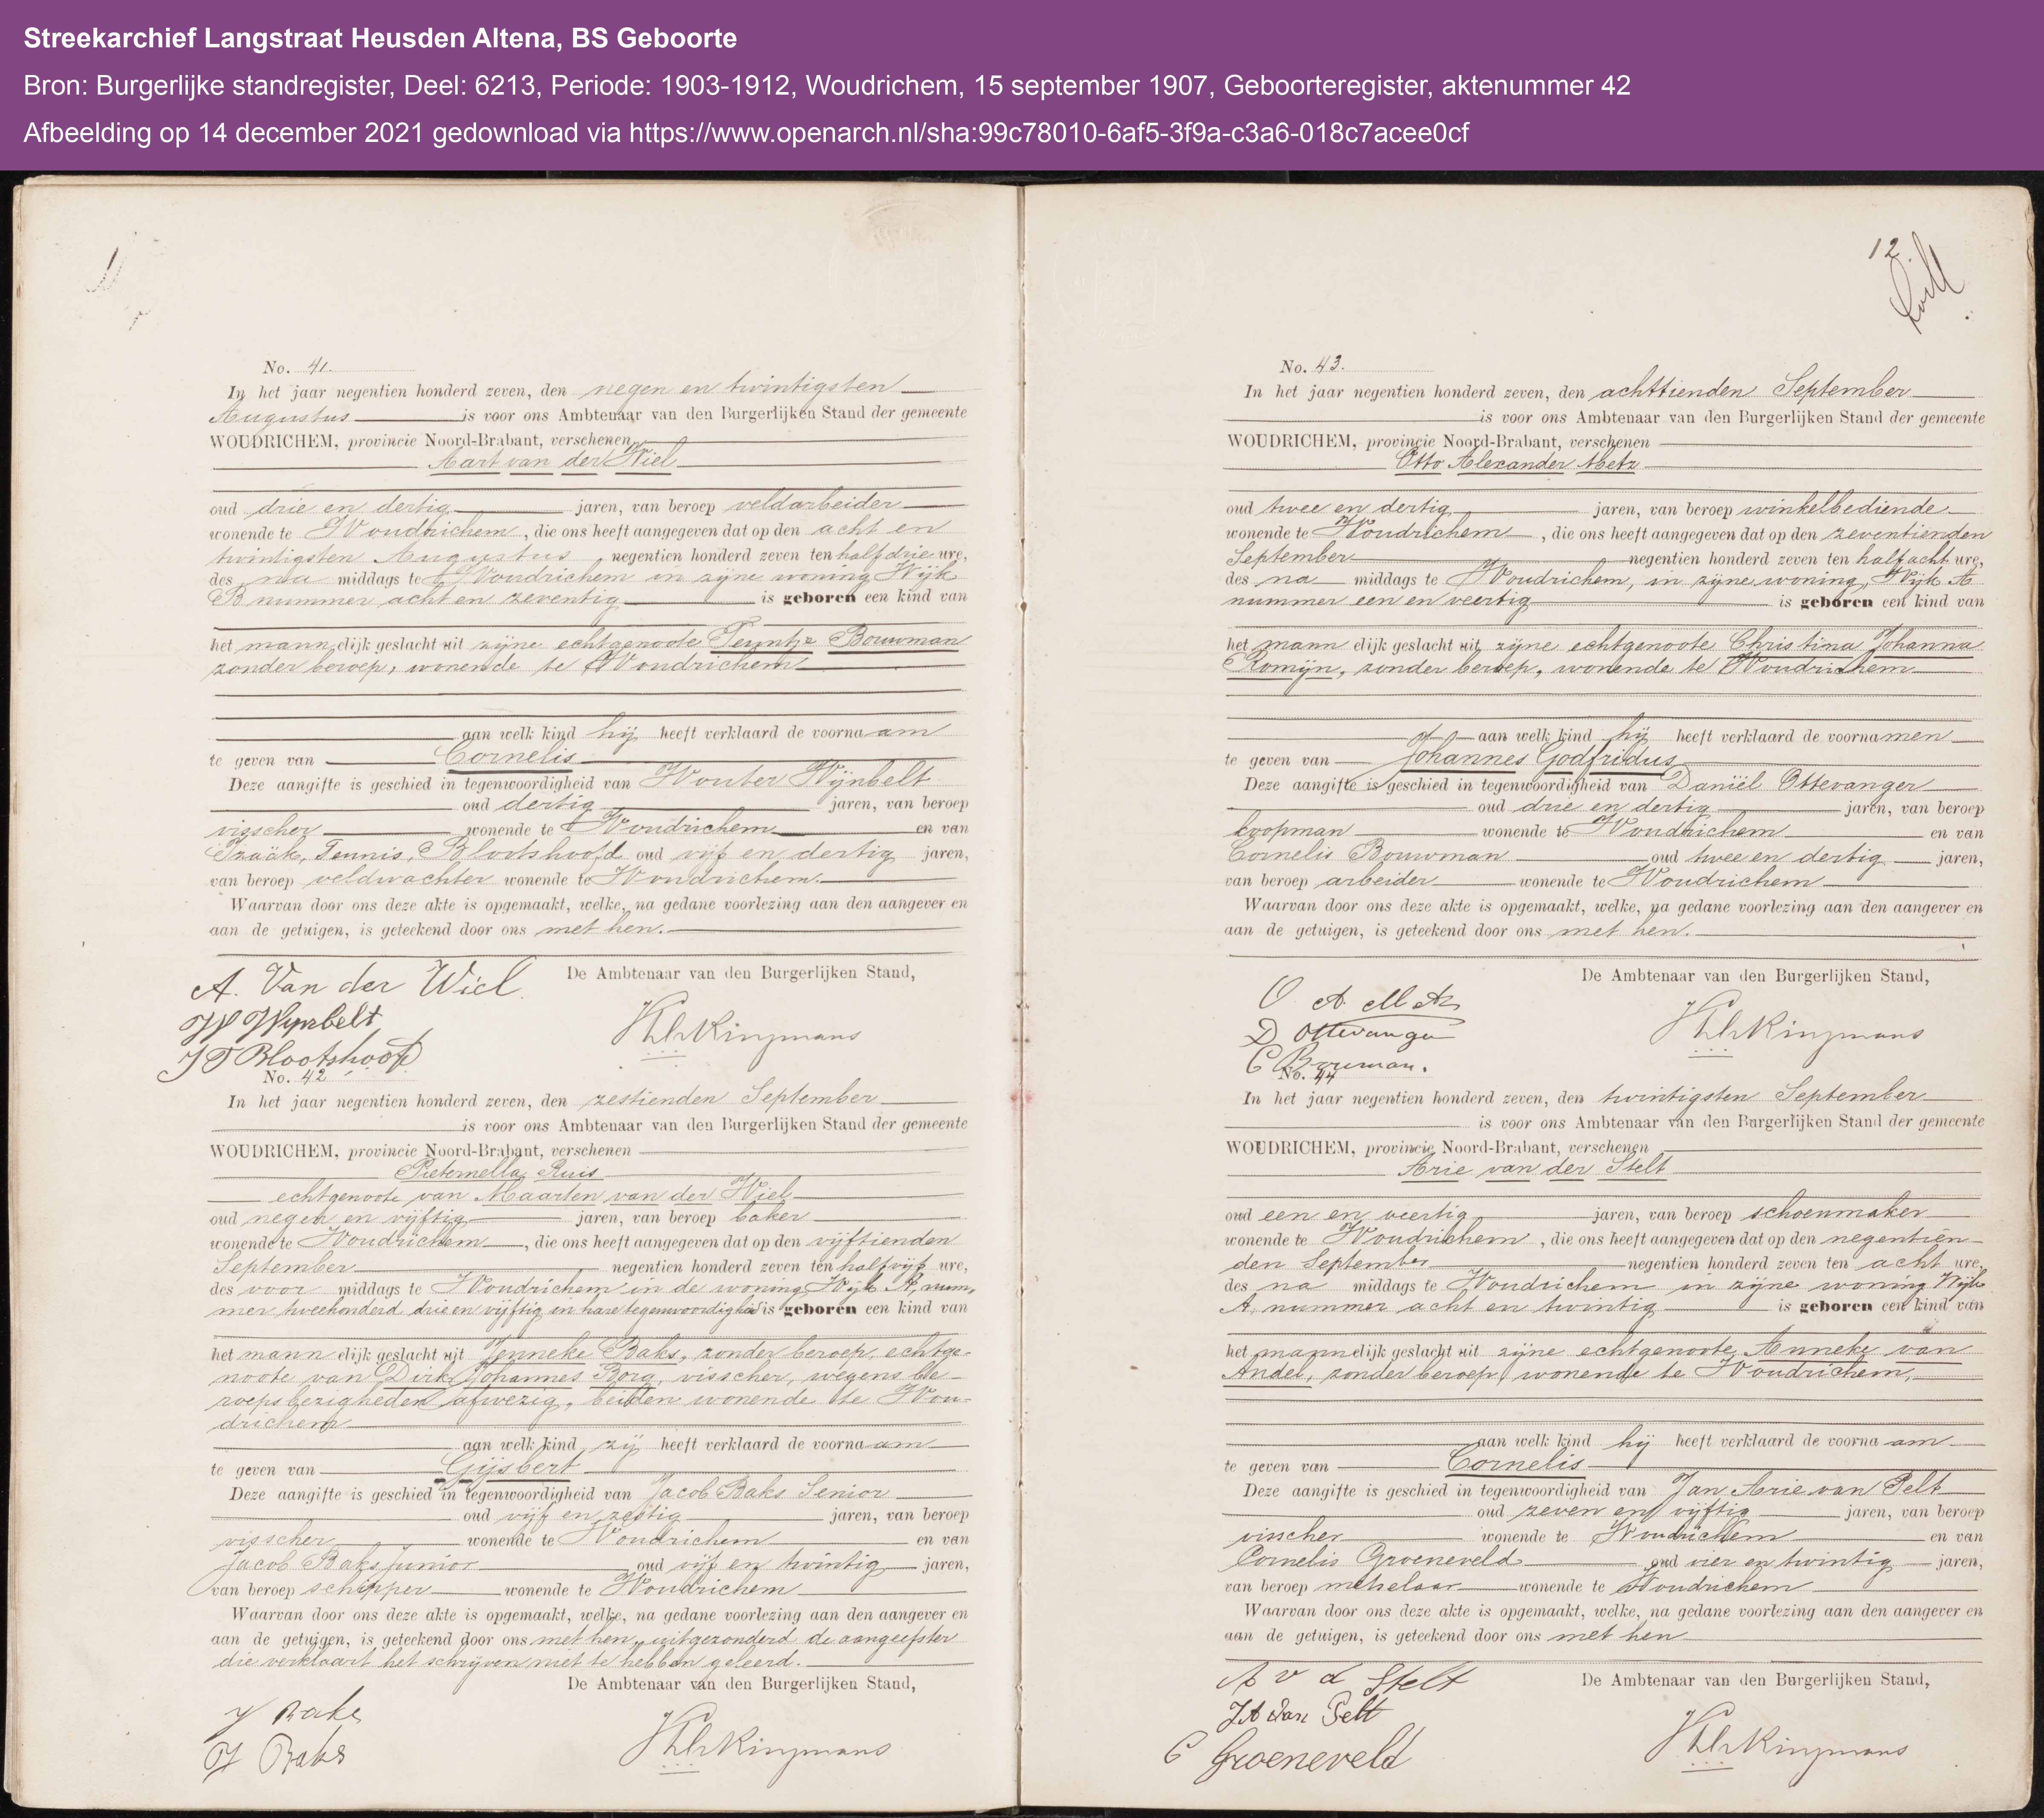 Streekarchief Langstraat Heusden Altena, BS Geboorte
Bron: Burgerlijke standregister, Deel: 6213, Periode: 1903-1912, Woudrichem, 15 september 1907, Geboorteregister, aktenummer 42
Afbeelding op 14 december 2021 gedownload via https://www.openarch.nl/sha:99c78010-6af5-3f9a-c3a6-018c7acee0cf
No. 41.
In het jaar negentien honderd zeven, den negen en twintigsten
Augustus is voor ons Ambtenaar van den Burgerlijken Stand der gemeente
WOUDRICHEM, provincie Noord-Brabant, verschenen
Aart van der Wiel
oud drie en dertig jaren, van beroep veldarbeider
wonende te Woudrichem, die ons heeft aangegeven dat op den acht en
twintigsten Augustus negentien honderd zeven ten half drie ure,
des na middags te Woudrichem in zijne woning Wijk
B nummer acht en zeventig is geboren een kind van
het mannelijk geslacht uit zijne echtgenoote Teuntje Bouwman
zonder beroep, wonende te Woudrichem
aan welk kind hij heeft verklaard de voornaam
te geven van Cornelis
Deze aangifte is geschied in tegenwoordigheid van Wouter Wijnbelt
oud dertig jaren, van beroep
visscher wonende te Woudrichem en van
Izaäk, Teunis, Blootshoofd oud vijf en dertig jaren,
van beroep veldwachter wonende te Woudrichem.
Waarvan door ons deze akte is opgemaakt, welke, na gedane voorlezing aan den aangever en
aan de getuigen, is geteekend door ons met hen.
De Ambtenaar van den Burgerlijken Stand,
A. Van der Wiel
W Wijnbelt
I T Blootshoofd
No. 42
In het jaar negentien honderd zeven, den zestienden September
is voor ons Ambtenaar van den Burgerlijken Stand der gemeente
WOUDRICHEM, provincie Noord-Brabant, verschenen
Pieternella Ruis
echtgenoote van Maarten van der Wiel
oud negen en vijftig jaren, van beroep baker
wonende te Woudrichem, die ons heeft aangegeven dat op den vijftienden
September negentien honderd zeven ten half vijf ure,
des voor middags te Woudrichem in de woning Wijk A, num
mer tweehonderd drie en vijftig in hare tegenwoordigheid is geboren een kind van
het mannelijk geslacht uit Jenneke Baks, zonder beroep, echtge-
noote van Dirk Johannes Borg, visscher, wegens be-
roepsbezigheden afwezig, beiden wonende te Wou-
drichem
aan welk kind zij heeft verklaard de voornaam
te geven van Gijsbert
Deze aangifte is geschied in tegenwoordigheid van Jacob Baks Senior
oud vijf en zestig jaren, van beroep
visscher wonende te Woudrichem en van
Jacob Baks Junior oud vijf en twintig jaren,
van beroep schipper wonende te Woudrichem
Waarvan door ons deze akte is opgemaakt, welke, na gedane voorlezing aan den aangever en
aan de getuigen, is geteekend door ons met hen, uitgezonderd de aangeefster
die verklaart het schrijven niet te hebben geleerd.
De Ambtenaar van den Burgerlijken Stand,
J Baks
J Baks
12
No. 43.
In het jaar negentien honderd zeven, den achttienden September
is voor ons Ambtenaar van den Burgerlijken Stand der gemeente
WOUDRICHEM, provincie Noord-Brabant, verschenen
Otto Alexander Metz
oud twee en dertig jaren, van beroep winkelbediende
wonende te Woudrichem, die ons heeft aangegeven dat op den zeventienden
September negentien honderd zeven ten half acht ure,
des na middags te Woudrichem, in zijne woning, Wijk A
nummer een en veertig is geboren een kind van
het mannelijk geslacht uit zijne echtgenoote Christina Johanna
Romijn, zonder beroep, wonende te Woudrichem
aan welk kind hij heeft verklaard de voornamen
te geven van Johannes Godfridus
Deze aangifte is geschied in tegenwoordigheid van Daniël Ottevanger
oud drie en dertig jaren, van beroep
koopman wonende te Woudrichem en van
Cornelis Bouwman oud twee en dertig jaren,
van beroep arbeider wonende te Woudrichem
Waarvan door ons deze akte is opgemaakt, welke, na gedane voorlezing aan den aangever en
aan de getuigen, is geteekend door ons met hen.
De Ambtenaar van den Burgerlijken Stand,
O A Metz
D Ottevanger
C Bouman.
No. 44
In het jaar negentien honderd zeven, den twintigsten September
is voor ons Ambtenaar van den Burgerlijken Stand der gemeente
WOUDRICHEM, provincie Noord-Brabant, verschenen
Arie van der Stelt
oud een en veertig jaren, van beroep schoenmaker
wonende te Woudrichem, die ons heeft aangegeven dat op den negentien-
den September negentien honderd zeven ten acht ure,
des na middags te Woudrichem in zijne woning Wijk
A, nummer acht en twintig is geboren een kind van
het mannelijk geslacht uit zijne echtgenoote Anneke van
Andel, zonder beroep, wonende te Woudrichem,
aan welk kind hij heeft verklaard de voornaam
te geven van Cornelis
Deze aangifte is geschied in tegenwoordigheid van Jan Arie van Pelt
oud zeven en vijftig jaren, van beroep
visscher wonende te Woudrichem en van
Cornelis Groeneveld oud vier en twintig jaren,
van beroep metselaar wonende te Woudrichem
Waarvan door ons deze akte is opgemaakt, welke, na gedane voorlezing aan den aangever en
aan de getuigen, is geteekend door ons met hen
De Ambtenaar van den Burgerlijken Stand,
A v d Stelt
J A van Pelt
C Groeneveld